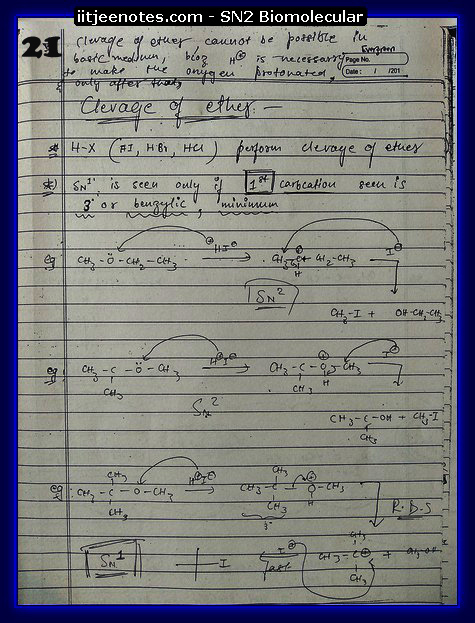 iitjeenotes.com - SN2 Biomolecular
21
Clevage of ether, cannot be possible in
basic medium, bcoz H⊕ is necessary
to make the oxygen protonated,
only after that
Evergreen
Page No.
Date : / /201
Clevage of ether —
H-X ( HI, HBr, HCl ) perform clevage of ether
SN1 is seen only if 1st carbcation seen is
3° or benzylic, minimum
eg CH3-Ö-CH2-CH3 H⊕I⊖ I⊖
H
SN2
CH3-I + OH-CH2-CH3
eg CH3-C-Ö-CH3 H⊕I⊖ CH3-C-O-CH3 I⊖
CH3 CH3 H
SN2
CH3-C-OH + CH3-I
CH3
CH3 CH3
eg CH3-C-O-CH3 H⊕I⊖ CH3-C-O-CH3
CH3 CH3 H
3° R.D.S
CH3
SN1 I fast I⊖ CH3-C⊕ + CH3-OH
CH3